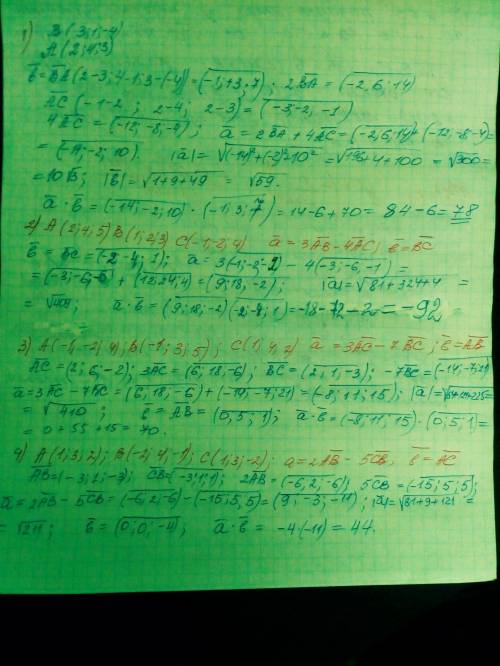 1) B(-3;1;-4)
A(2;4;3)
b̄ = B̄Ā(2-3; 4-1; 3-(-4)) = (-1;+3;7); 2B̄Ā = (-2;6;14)
AC(-1-2; 2-4; 2-3) = (-3;-2;-1)
4AC = (-12;-8;-4); ā = 2BA + 4AC = (-2;6;14)+(-12;-8;-4) =
= (-14;-2;10). |ā| = √(-14)²+(-2)²+10² = √196+4+100 = √300 =
= 10√3. |b̄| = √1+9+49 = √59.
ā·b̄ = (-14;-2;10)·(-1;3;7) = 14-6+70 = 84-6 = 78
2) A(2;4;5) B(1;2;3) C(-1;-2;4) ā = 3AB-4AC; b̄ = BC
b̄ = BC = (-2;-4;1); ā = 3(-1;-2;-2) - 4(-3;-6;-1) =
= (-3;-6;-6) + (12;24;4) = (9;18;-2); |ā| = √81+324+4 =
= √409; ā·b̄ = (9;18;-2)(-2;-4;1) = -18-72-2 = -92
3) A(-1;-2;4); B(-1;3;5); C(1;4;2) ā = 3AC-7BC; b̄ = AB
AC = (2;6;-2); 3AC = (6;18;-6); BC = (2;1;-3); -7BC = (-14;-7;21)
ā = 3AC-7BC = (6;18;-6)+(-14;-7;21) = (-8;11;15); |ā| = √64+121+225 =
= √410; b = AB = (0;5;1); ā·b̄ = (-8;11;15)·(0;5;1) =
= 0+55+15 = 70.
4) A(1;3;2); B(-2;4;-1); C(1;3;-2); a = 2AB - 5CB, b̄ = AC
AB = (-3;1;-3); CB = (-3;1;1); 2AB = (-6;2;-6); 5CB = (-15;5;5);
ā = 2AB - 5CB = (-6;2;-6) - (-15;5;5) = (9;-3;-11); |ā| = √81+9+121 =
= √211; b̄ = (0;0;-4); ā·b̄ = -4·(-11) = 44.